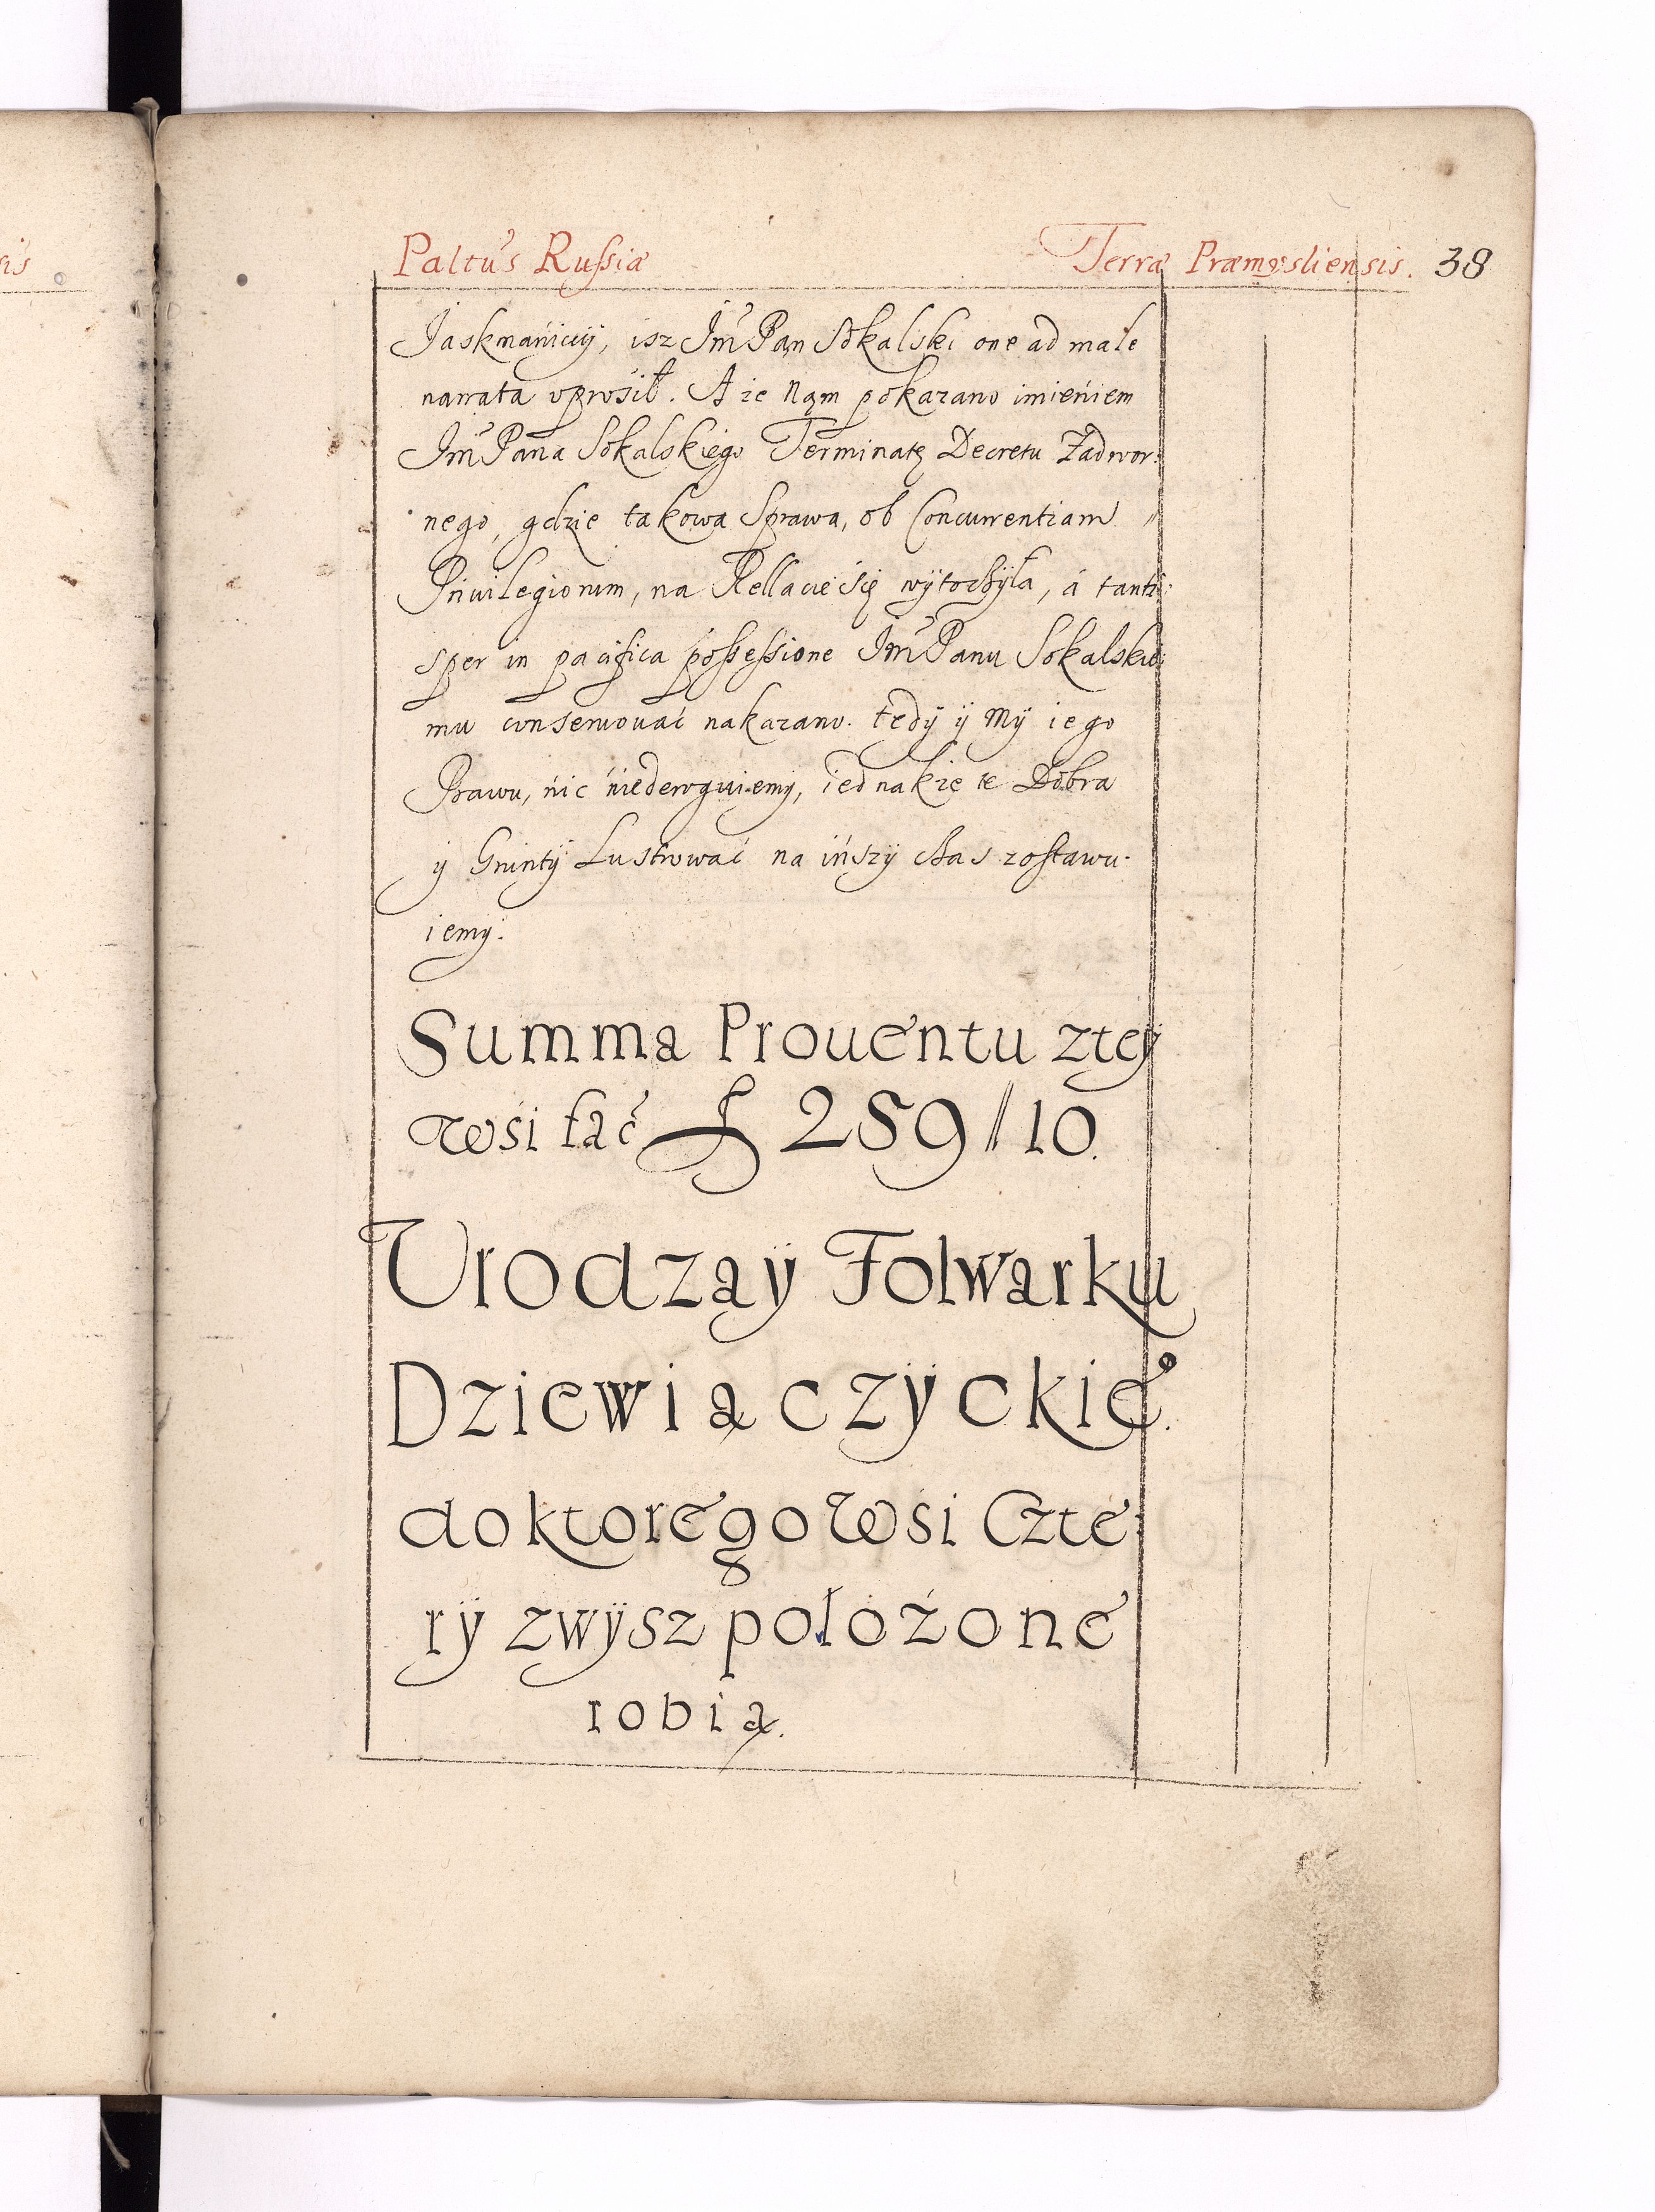 Paltus Russiæ Terræ Præmysliensis. 38
Jaskmanicy, isz Jm̃ Pąn Sokalski one ad male
narrata uprosił. A ze Nąm pokazano imieniem
Jm̃ Pana Sokalskiego Terminatę Decretu Zadwor:
nego, gdzie takowa Sprawa, ob Concurrentiam
Priuilegiorum, na Rellacie się wytoczyła, á tanti:
sper in pacifica possessione Jm̃ Panu Sokalskie:
mu conseruouać nakazano. tedÿ ÿ Mÿ iego
Prawu, nic niederoguiemy, iednakze te Dobra
ÿ Gruntÿ Lustrować na inszÿ czas zostawu:
iemy.
Summa Prouentu ztey
wsi łac f 259//10.
Urodzaÿ Folwarku
Dziewiączÿckie°.
do ktorego Wsi Czte:
rÿ zwÿsz położone
robią.
sis